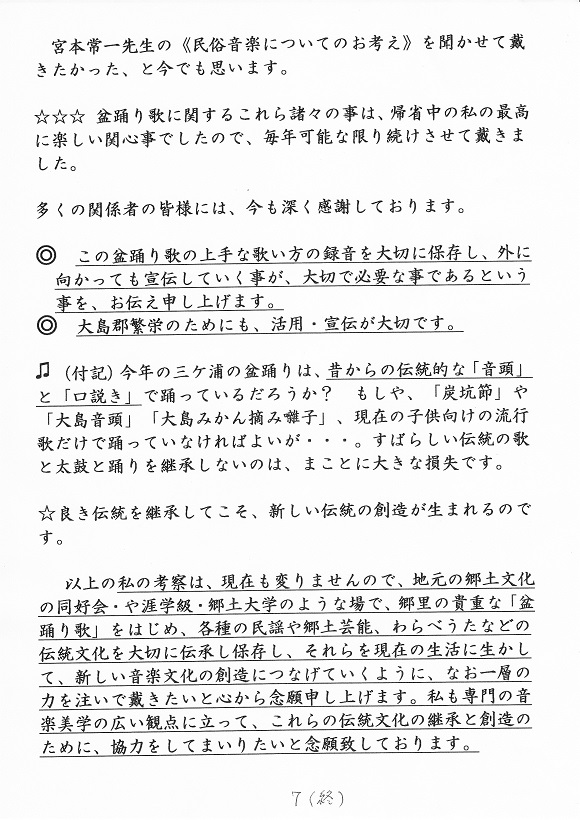 宮本常一先生の《民俗音楽についてのお考え》を聞かせて戴
きたかった、と今でも思います。
☆☆☆ 盆踊り歌に関するこれら諸々の事は、帰省中の私の最高
に楽しい関心事でしたので、毎年可能な限り続けさせて戴きま
した。
多くの関係者の皆様には、今も深く感謝しております。
◎ この盆踊り歌の上手な歌い方の録音を大切に保存し、外に
向かっても宣伝していく事が、大切で必要な事であるという
事を、お伝え申し上げます。
◎ 大島郡繁栄のためにも、活用・宣伝が大切です。
♫ (付記) 今年の三ケ浦の盆踊りは、昔からの伝統的な「音頭」
と「口説き」で踊っているだろうか？ もしや、「炭坑節」や
「大島音頭」「大島みかん摘み囃子」、現在の子供向けの流行
歌だけで踊っていなければよいが・・・。すばらしい伝統の歌
と太鼓と踊りを継承しないのは、まことに大きな損失です。
☆良き伝統を継承してこそ、新しい伝統の創造が生まれるので
す。
以上の私の考察は、現在も変りませんので、地元の郷土文化
の同好会・や涯学級・郷土大学のような場で、郷里の貴重な「盆
踊り歌」をはじめ、各種の民謡や郷土芸能、わらべうたなどの
伝統文化を大切に伝承し保存し、それらを現在の生活に生かし
て、新しい音楽文化の創造につなげていくように、なお一層の
力を注いで戴きたいと心から念願申し上げます。私も専門の音
楽美学の広い観点に立って、これらの伝統文化の継承と創造の
ために、協力をしてまいりたいと念願致しております。
7 (終)